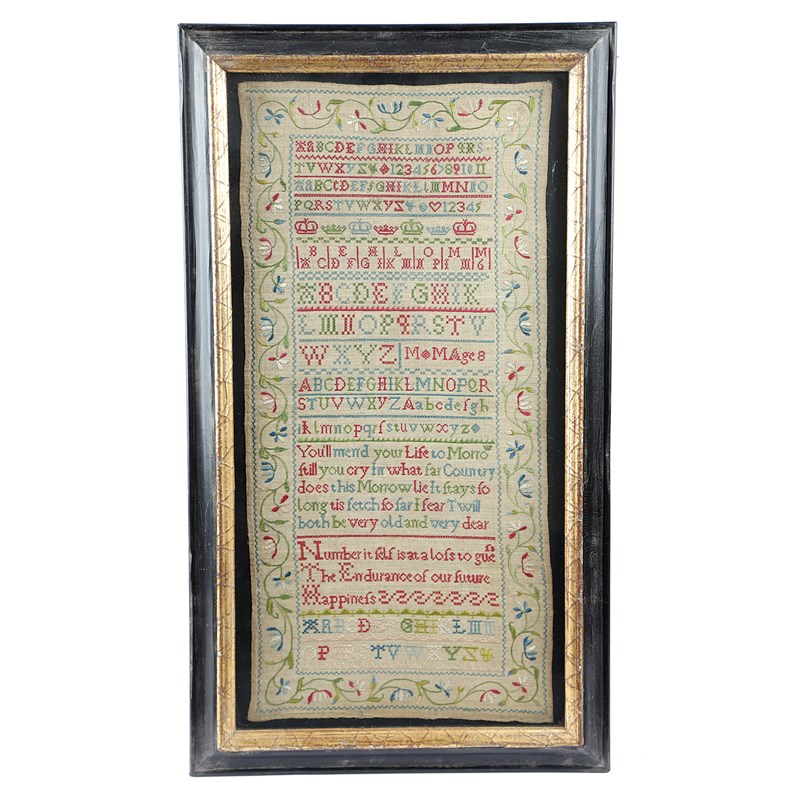 A a B C D E F G H I K L M N O P Q R S
T V W X Y Z & 1 2 3 4 5 6 7 8 9 10 11
A a B C D E F G H I K L M N O
P Q R S T V W X Y Z & 1 2 3 4 5
A B C D E F G H I K
L M N O P Q R S T V
W X Y Z M M Age 8
A B C D E F G H I K L M N O P Q R
S T U V W X Y Z A a b c d e f g h
i k l m n o p q r ſ s t u v w x y z
You'll mend your Life to Morrow
ſtill you cry In what far Country
does this Morrow lie It ſtays ſo
long tis fetch ſo far I fear T will
both be very old and very dear
Number it ſelf is at a loſs to gueſs
The Endurance of our future
Happineſs
A B C D G H I K L M
P T V W Y Z &